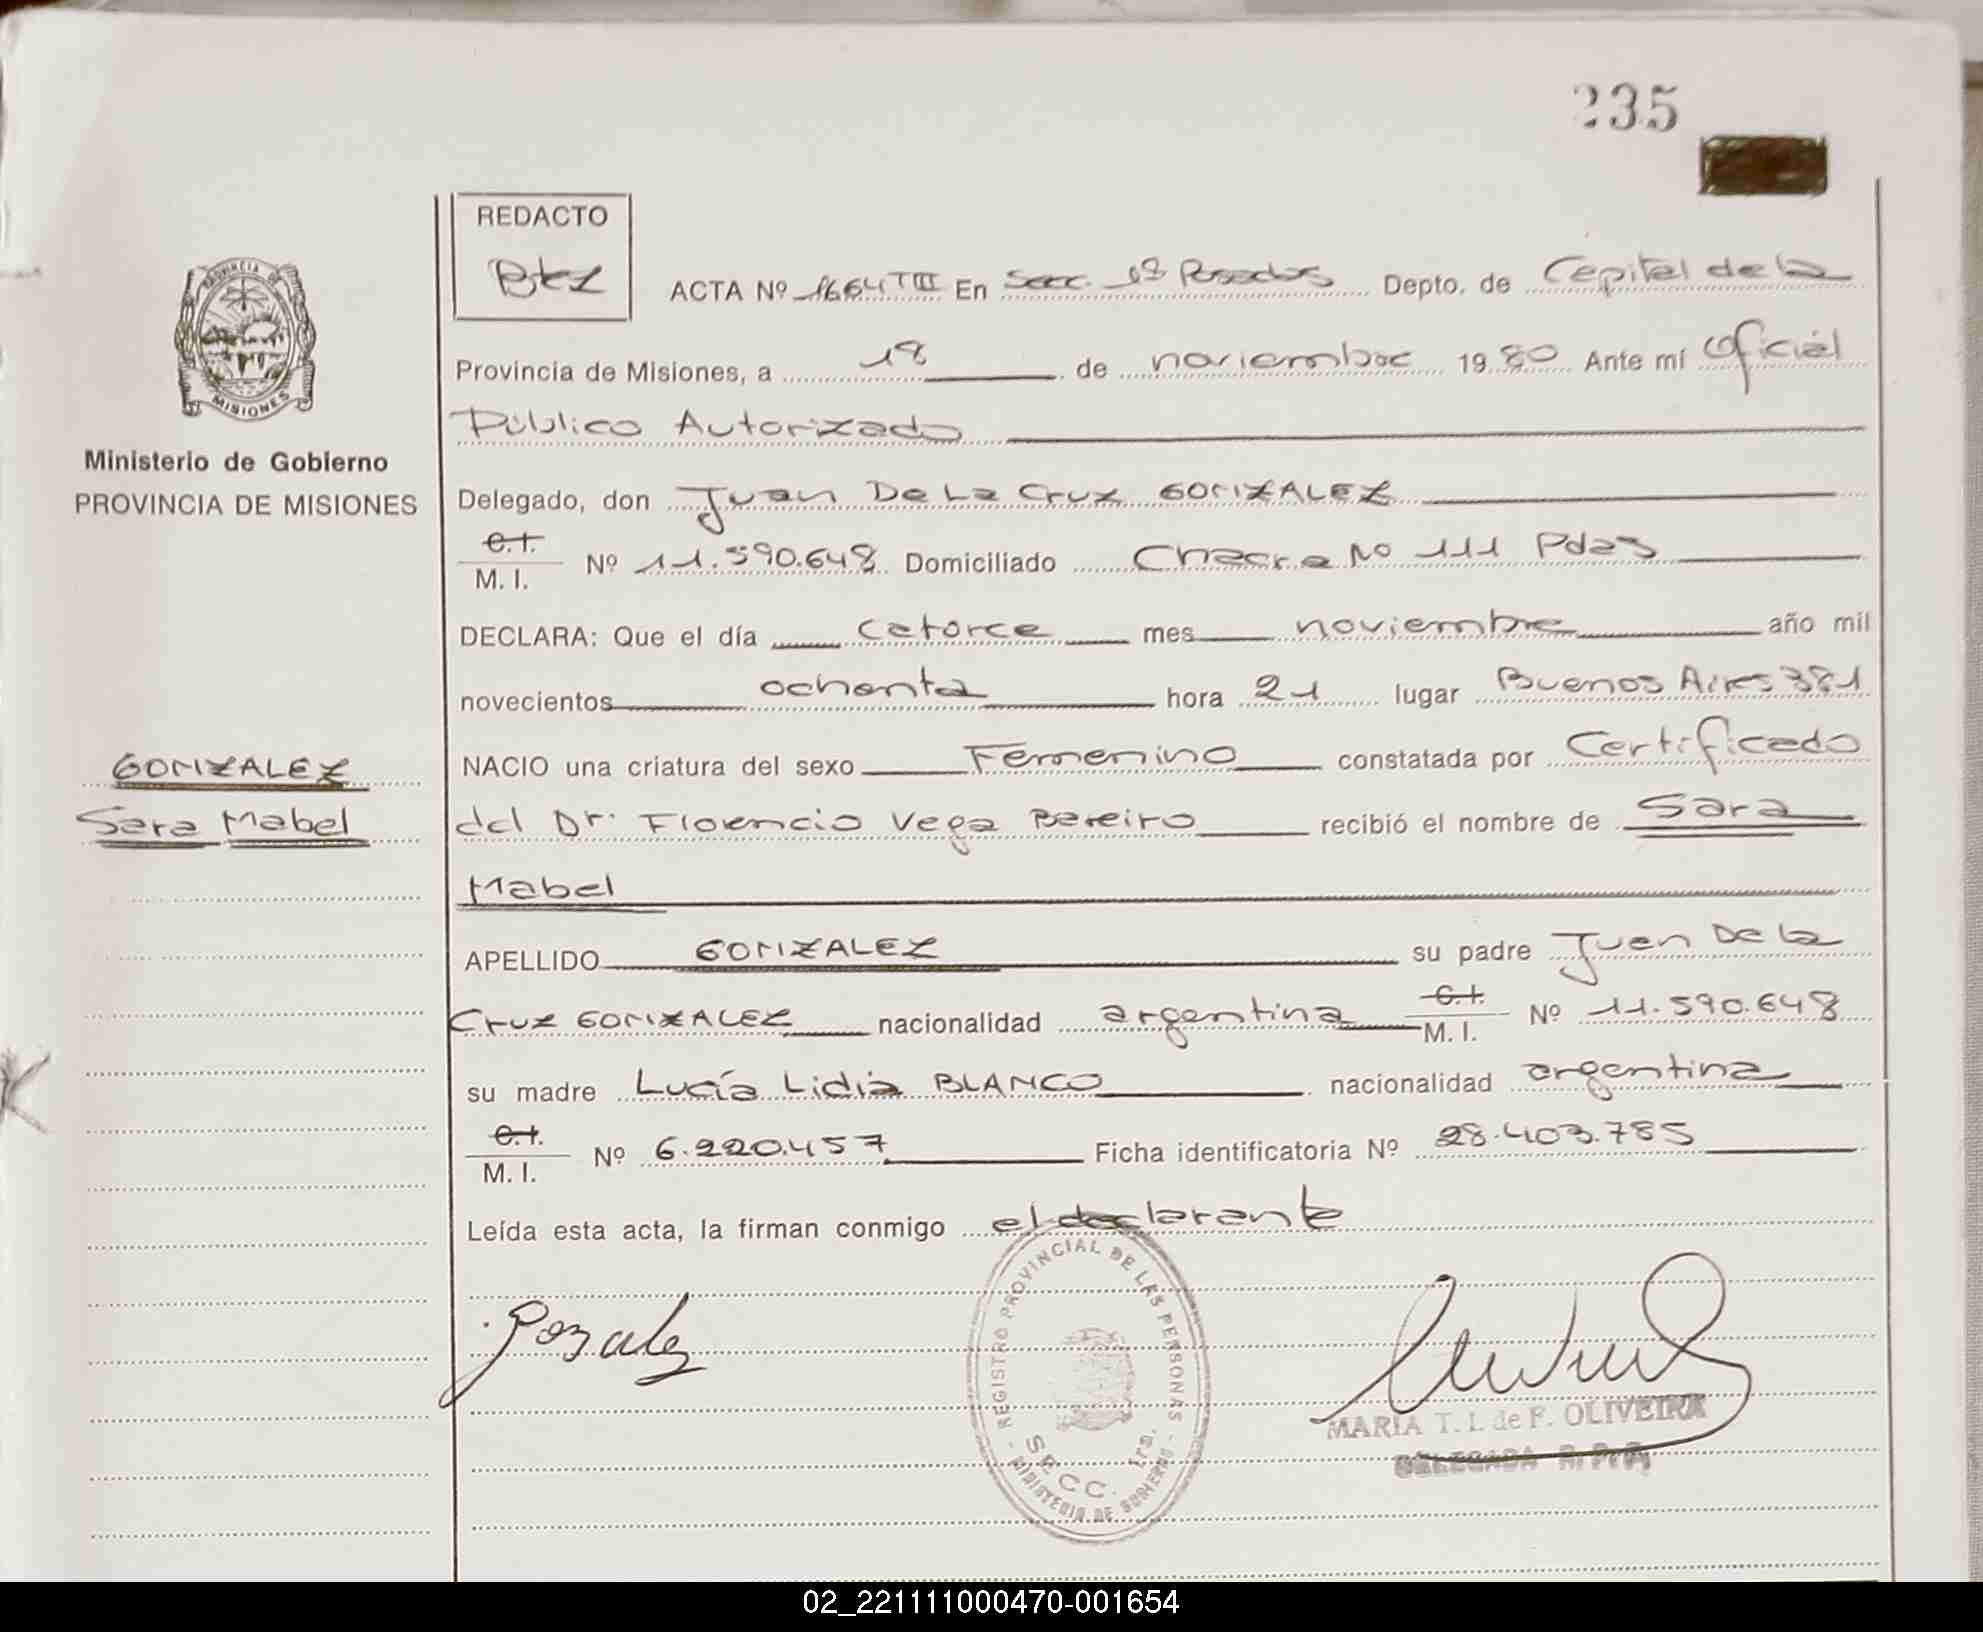 235
REDACTO
ACTA Nº 1664 TIII En Secc. 1ª Posadas Depto. de Capital de la
Provincia de Misiones, a 18 de noviembre 1980 Ante mí Oficial
Público Autorizado
PROVINCIA DE MISIONES
Ministerio de Gobierno
PROVINCIA DE MISIONES
Delegado, don Juan De La Cruz GONZALEZ
C.I.
M. I. Nº 11.590.648 Domiciliado Chacra Nº 111 Pdas
DECLARA: Que el día catorce mes noviembre año mil
novecientos ochenta hora 21 lugar Buenos Aires 381
NACIO una criatura del sexo Femenino constatada por Certificado
GONZALEZ
Sara Mabel
del Dr. Florencio Vega Bareiro recibió el nombre de Sara
Mabel
APELLIDO GONZALEZ su padre Juan De La
Cruz GONZALEZ nacionalidad argentina C.I.
M. I. Nº 11.590.648
su madre Lucía Lidia BLANCO nacionalidad argentina
C.I.
M. I. Nº 6.220.457 Ficha identificatoria Nº 28.403.785
Leída esta acta, la firman conmigo el declarante
REGISTRO PROVINCIAL DE LAS PERSONAS
SECC. 1ra.
MINISTERIO DE GOBIERNO
MARIA T. I. de F. OLIVEIRA
DELEGADA R. P. P.
02_221111000470-001654